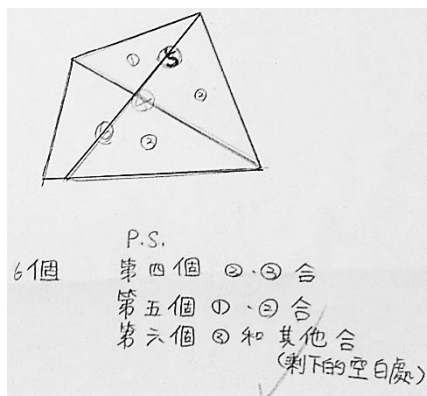 ①
5
②
②
P.S.
6個
第四個 ②、③ 合
第五個 ①、② 合
第六個 ③ 和 其他 合
(剩下的空白處)